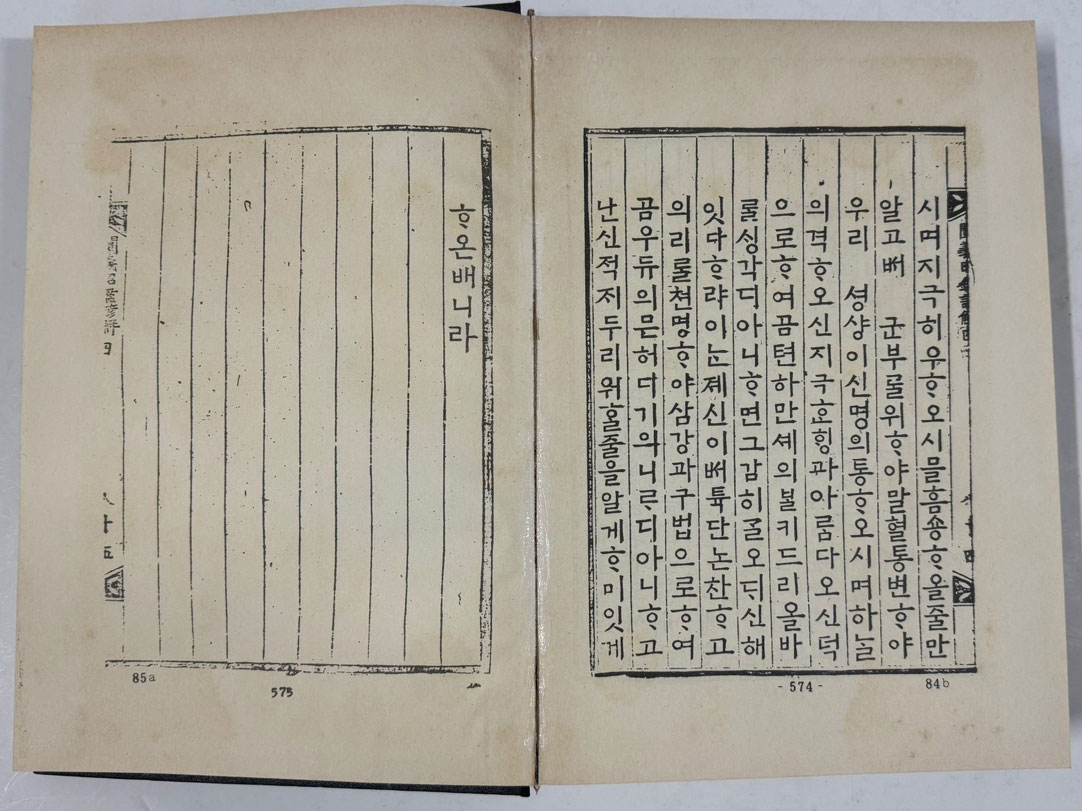 시며지극히우ᄒᆞ오시믈흠숑ᄒᆞ올줄만
알고ᄡᅥ 군부ᄅᆞᆯ위ᄒᆞ야말혈통변ᄒᆞ야
우리 셩샹이신명의통ᄒᆞ오시며하ᄂᆞᆯ
의격ᄒᆞ오신지극효ᄒᆡᆼ과아름다오신덕
으로ᄒᆞ여곰텬하만셰의ᄇᆞᆯ키드리올바
ᄅᆞᆯᄉᆡᆼ각디아니ᄒᆞ면그감히ᄀᆞᆯ오ᄃᆡ신해
잇다ᄒᆞ랴이ᄂᆞᆫ졔신이ᄡᅥ튝단논찬ᄒᆞ고
의리ᄅᆞᆯ쳔명ᄒᆞ야삼강과구법으로ᄒᆞ여
곰우듀의믄허디기의니ᄅᆞ디아니ᄒᆞ고
난신적저두리워ᄒᆞᆯ줄을알게ᄒᆞ미잇게
84b
- 574 -
ᄒᆞ온배니라
85a
575